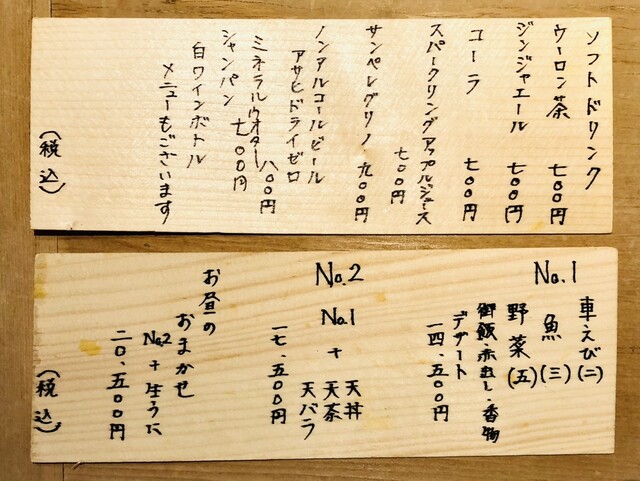 ソフトドリンク
ウーロン茶 七〇〇円
ジンジャエール 七〇〇円
コーラ 七〇〇円
スパークリングアップルジュース
七〇〇円
サンペレグリノ 九〇〇円
ノンアルコールビール
アサヒドライゼロ
八〇〇円
ミネラルウオター
七〇〇円
シャンパン
白ワインボトル
メニューもございます
(税込)
No.1
車えび(二)
魚(三)
野菜(五)
御飯・赤出し・香物
デザート
一四、五〇〇円
No.2
No.1
+
天丼
天茶
天バラ
一七、五〇〇円
お昼の
おまかせ
No.2+生うに
二〇、五〇〇円
(税込)